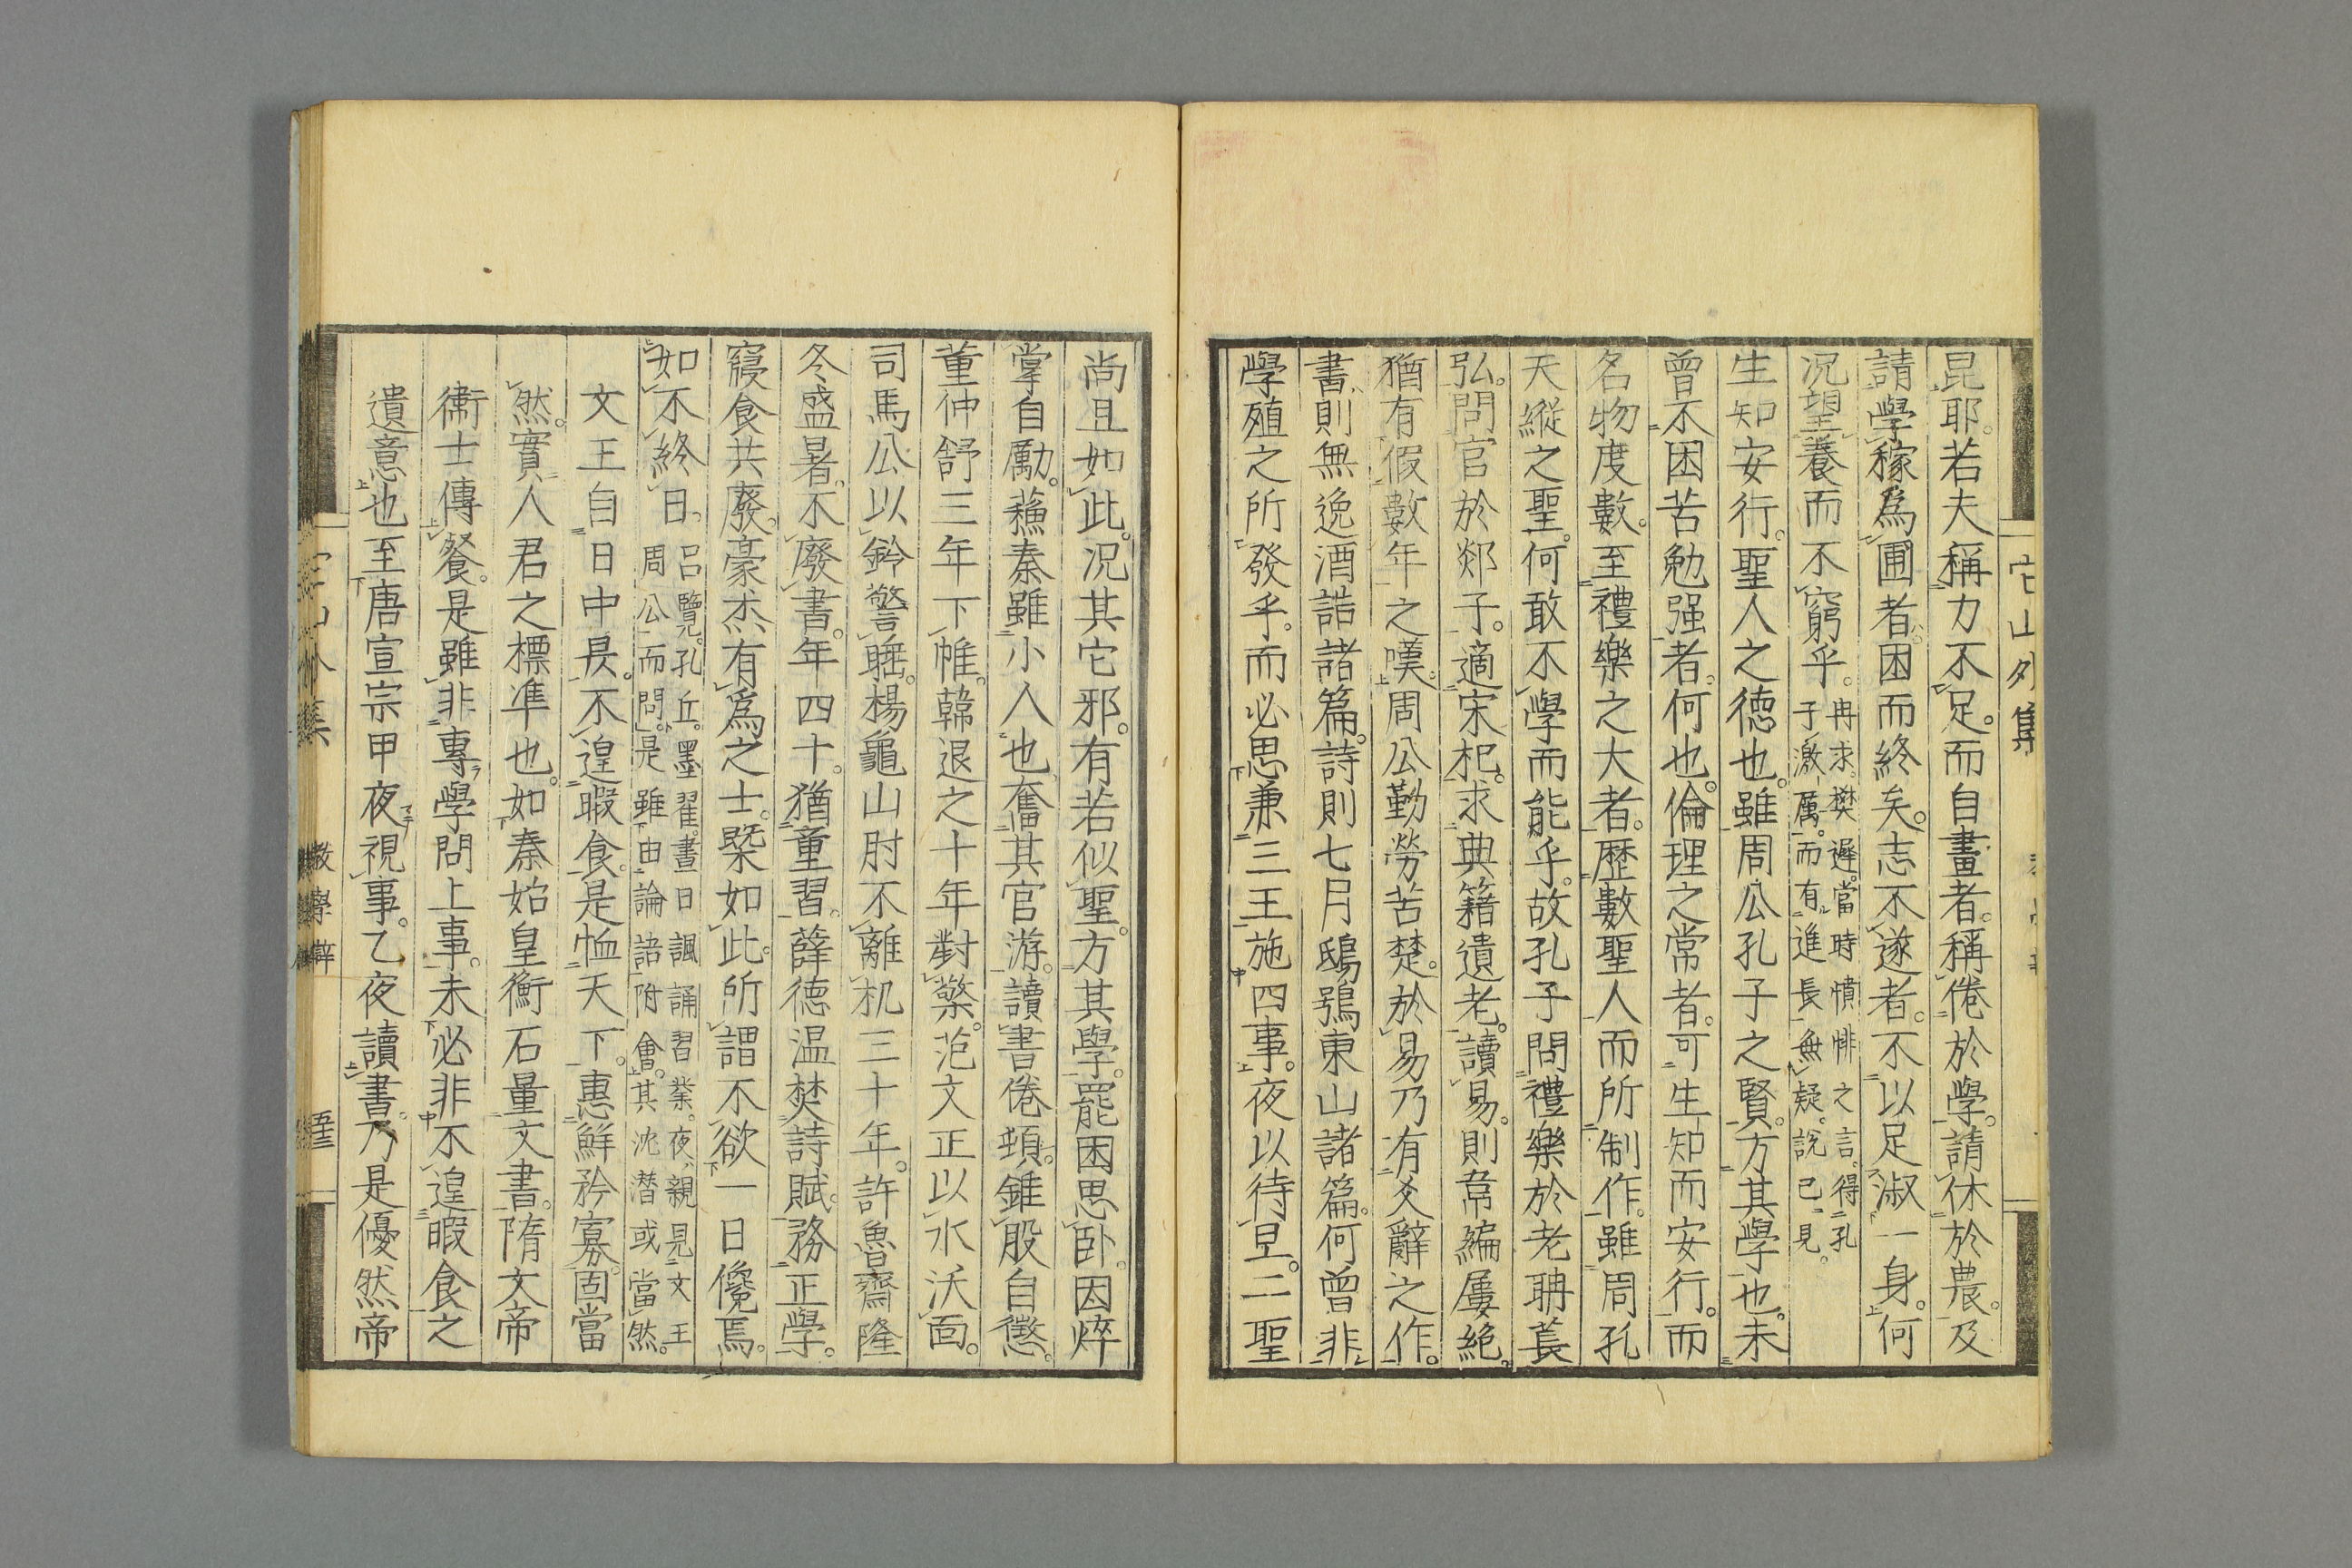 昆耶。若夫稱力不足。而自畫者。稱倦於學。請休於農。及
請學稼爲圃者。困而終矣。志不遂者。不以足淑一身。何
况望養而不窮乎。冉求。樊遲。當時憤悱之言。得孔
于激厲。而有進長無疑。説已見。
生知安行。聖人之德也。雖周公孔子之賢。方其學也。未
曾不困苦勉强者。何也。倫理之常者。可生知而安行。而
名物度數。至禮樂之大者。歷數聖人而所制作。雖周孔
天縱之聖。何敢不學而能乎。故孔子問禮樂於老聃萇
弘。問官於郯子。適宋杞。求典籍遺老。讀易。則韋編屢絶。
猶有假數年之嘆。周公勤勞苦楚。於易乃有爻辭之作。
書則無逸酒誥諸篇。詩則七月鴟鴞東山諸篇。何曾非
學殖之所發乎。而必思兼三王施四事。夜以待旦。二聖
尚且如此。况其它邪。有若似聖。方其學。罷困思卧。因焠
掌自勵。蘓秦雖小人也。奮其官游。讀書倦頓。錐股自懲。
董仲舒三年下帷。韓退之十年對檠。范文正以水沃面。
司馬公以鈴警睡。楊龜山肘不離机三十年。許魯齋隆
冬盛暑。不廢書。年四十。猶童習。薛德温焚詩賦。務正學。
寢食共廢。豪杰有爲之士。槩如此。所謂不欲一日儳焉。
如不終日。呂覽。孔丘。墨翟。晝日諷誦習業。夜親見文王
周公而問。是雖由論語附會。其沈潜或當然。
文王自日中昃。不遑暇食。是恤天下。惠鮮矜寡。固當
然。實人君之標準也。如秦始皇衡石量文書。隋文帝
衞士傳餐。是雖非專學問上事。未必非不遑暇食之
遺意也。至唐宣宗甲夜視事。乙夜讀書。乃是優然帝